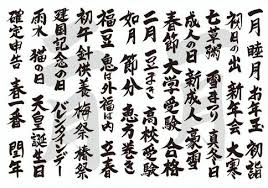 一月 睦月 お年玉 初詣
初日の出 新年会 大寒
七草粥 雪まつり 真冬日
成人の日 新成人 豪雪
春節 大学受験 合格
二月 豆まき 高校受験
如月 節分 恵方巻き
福豆 鬼は外福は内 立春
初午 針供養 梅祭 椿祭
建国記念の日 バレンタインデー
雨水 猫の日 天皇誕生日
確定申告 春一番 閏年